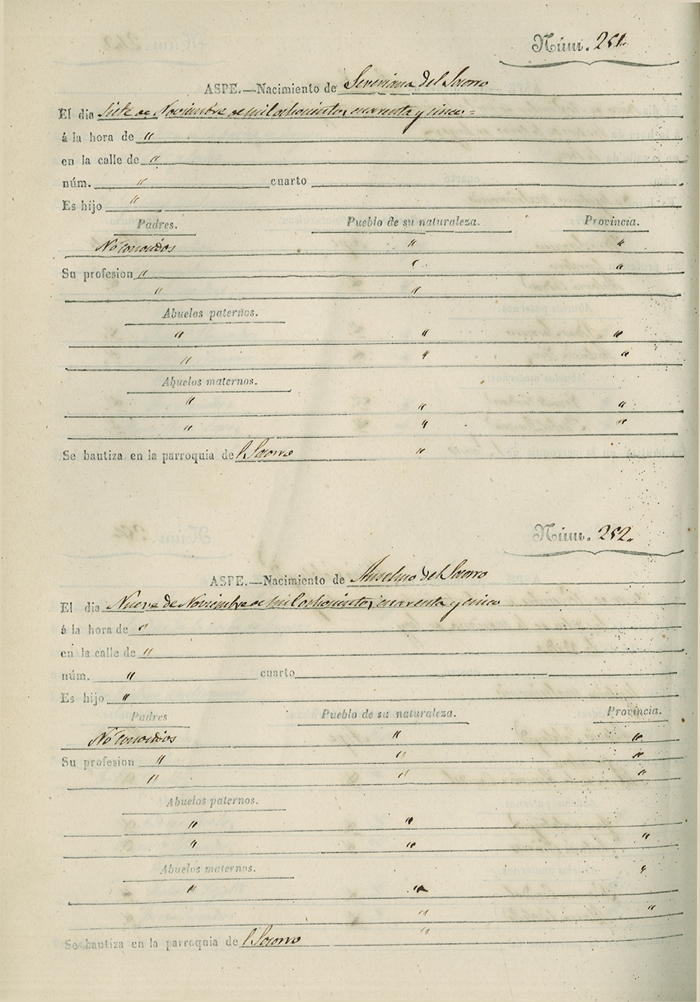 Núm. 251.
ASPE.—Nacimiento de Severiana del Socorro
El dia Siete de Noviembre de mil ochocientos cuarenta y cinco =
á la hora de "
en la calle de "
núm. " cuarto
Es hijo "
Padres. Pueblo de su naturaleza. Provincia.
No conocidos " "
Su profesion " " "
" "
Abuelos paternos.
" " "
" " "
Abuelos maternos.
"
" "
" "
Se bautiza en la parroquia del Socorro "
Núm. 252.
ASPE.—Nacimiento de Anselmo del Socorro
El dia Nueve de Noviembre de mil ochocientos cuarenta y cinco
á la hora de "
en la calle de "
núm. " cuarto
Es hijo "
Padres Pueblo de su naturaleza. Provincia.
No conocidos " "
Su profesion " "
" " "
Abuelos paternos.
" "
" " "
Abuelos maternos. "
" "
" "
Se bautiza en la parroquia del Socorro "